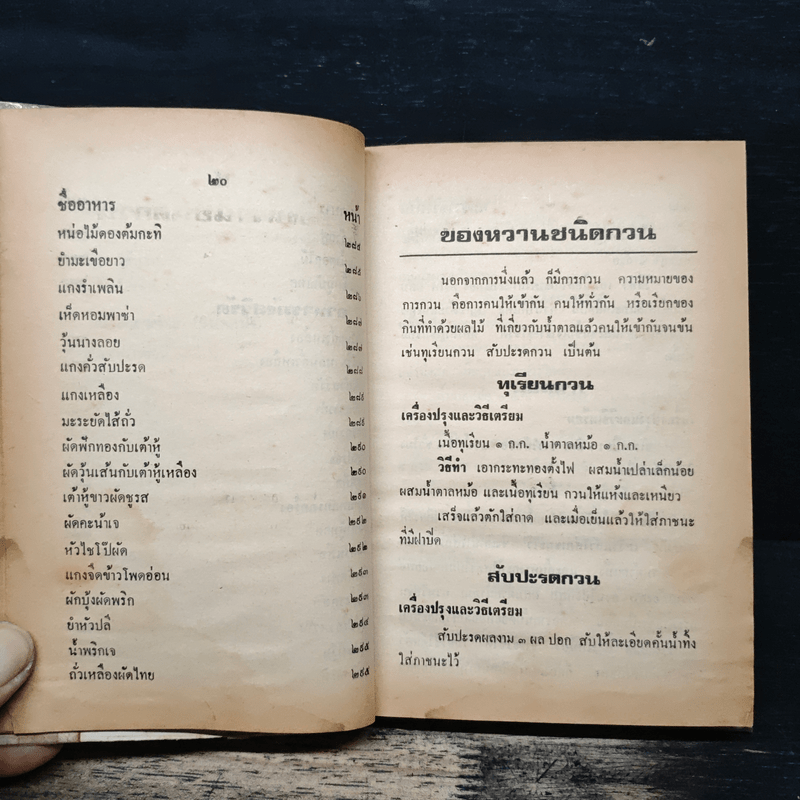 ๒๐
ชื่ออาหาร หน้า
หน่อไม้ดองต้มกะทิ ๒๘๕
ยำมะเขือยาว ๒๘๕
แกงรำเพลิน ๒๘๖
เห็ดหอมพาซ่า ๒๘๗
วุ้นนางลอย ๒๘๗
แกงคั่วสับปะรด ๒๘๘
แกงเหลือง ๒๘๙
มะระยัดไส้ถั่ว ๒๘๙
ผัดฟักทองกับเต้าหู้ ๒๙๐
ผัดวุ้นเส้นกับเต้าหู้เหลือง ๒๙๐
เต้าหู้ขาวผัดชูรส ๒๙๑
ผัดคะน้าเจ ๒๙๒
หัวไชโป๊ผัด ๒๙๒
แกงจืดข้าวโพดอ่อน ๒๙๓
ผักบุ้งผัดพริก ๒๙๓
ยำหัวปลี ๒๙๔
น้ำพริกเจ ๒๙๕
ถั่วเหลืองผัดไทย ๒๙๕
ของหวานชนิดกวน
นอกจากการนึ่งแล้ว ก็มีการกวน ความหมายของ
การกวน คือการคนให้เข้ากัน คนให้ทั่วกัน หรือเรียกของ
กินที่ทำด้วยผลไม้ ที่เกี่ยวกับน้ำตาลแล้วคนให้เข้ากันจนข้น
เช่นทุเรียนกวน สับปะรดกวน เป็นต้น
ทุเรียนกวน
เครื่องปรุงและวิธีเตรียม
เนื้อทุเรียน ๑ ก.ก. น้ำตาลหม้อ ๑ ก.ก.
วิธีทำ เอากระทะทองตั้งไฟ ผสมน้ำเปล่าเล็กน้อย
ผสมน้ำตาลหม้อ และเนื้อทุเรียน กวนให้แห้งและเหนียว
เสร็จแล้วตักใส่ถาด และเมื่อเย็นแล้วให้ใส่ภาชนะ
ที่มีฝาปิด
สับปะรดกวน
เครื่องปรุงและวิธีเตรียม
สับปะรดผลงาม ๓ ผล ปอก สับให้ละเอียดคั้นน้ำทิ้ง
ใส่ภาชนะไว้